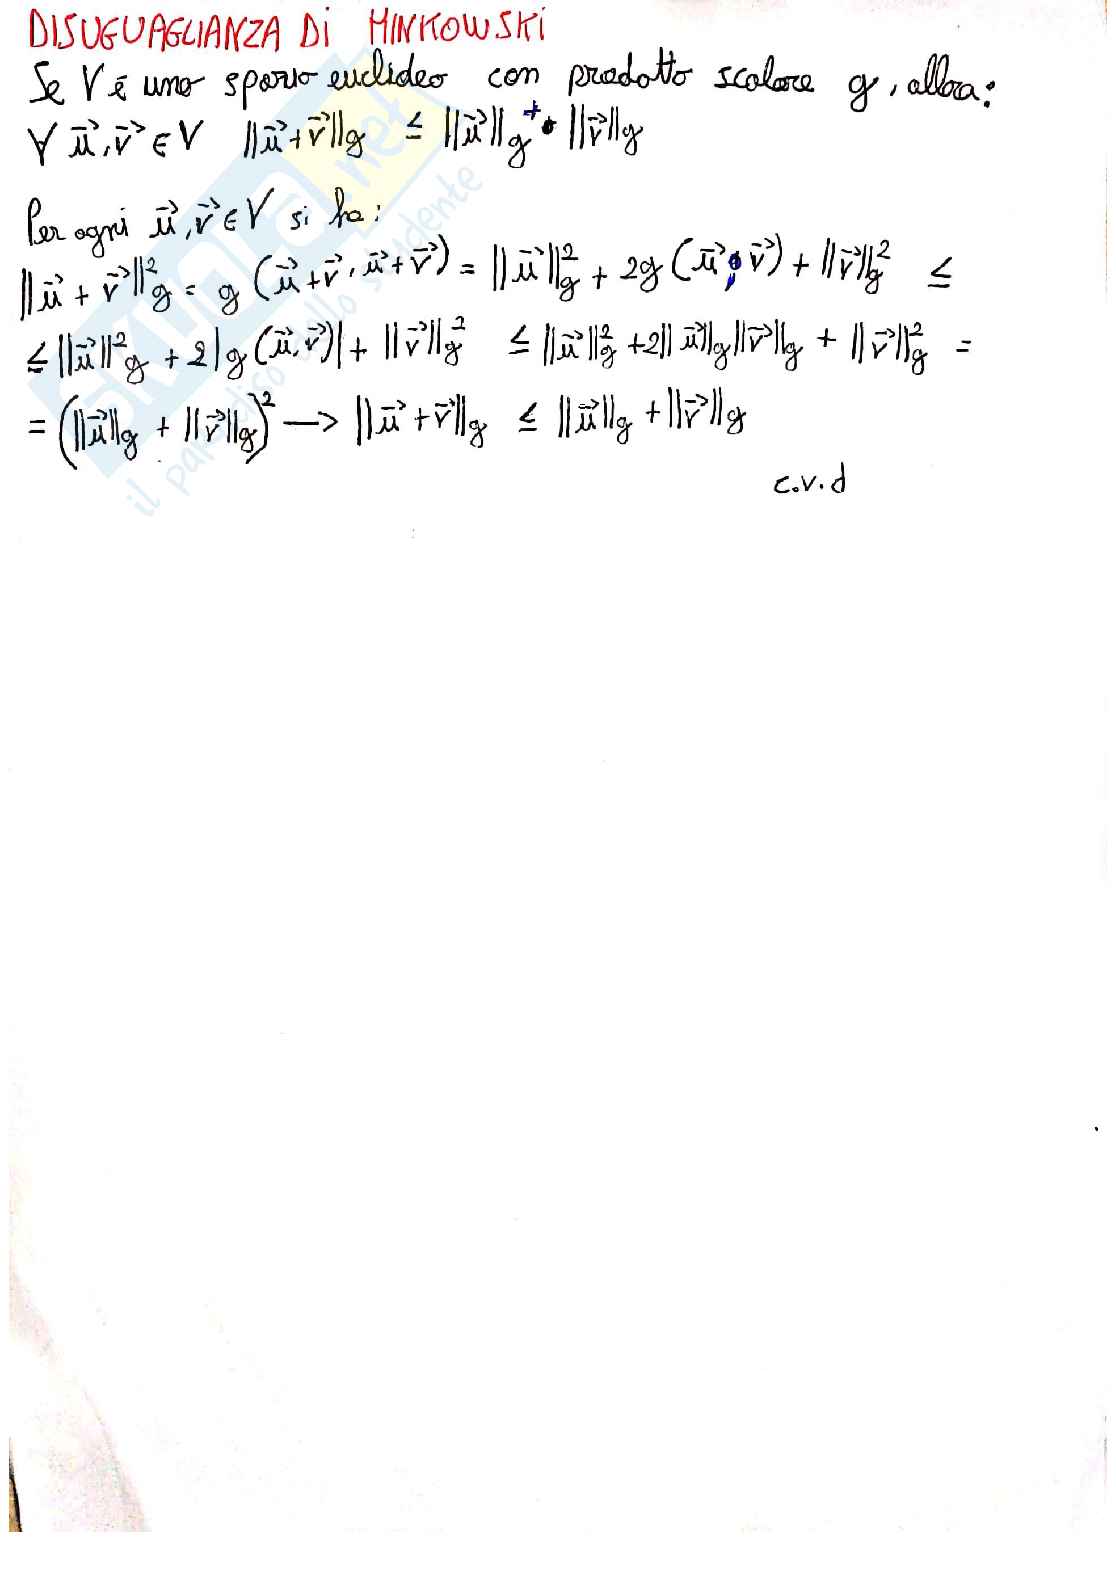 DISUGUAGLIANZA DI MINKOWSKI
Se V è uno spazio euclideo con prodotto scalare g, allora:
∀ u⃗, v⃗ ∈ V ||u⃗+v⃗||g ≤ ||u⃗||g + ||v⃗||g
Per ogni u⃗, v⃗ ∈ V si ha:
||u⃗ + v⃗||²g = g (u⃗+v⃗, u⃗+v⃗) = ||u⃗||²g + 2g (u⃗, v⃗) + ||v⃗||²g ≤
≤ ||u⃗||²g + 2|g (u⃗, v⃗)| + ||v⃗||g² ≤ ||u⃗||²g + 2||u⃗||g ||v⃗||g + ||v⃗||²g =
= (||u⃗||g + ||v⃗||g)² → ||u⃗ + v⃗||g ≤ ||u⃗||g + ||v⃗||g
c.v.d
skuola.net
il paradiso dello studente